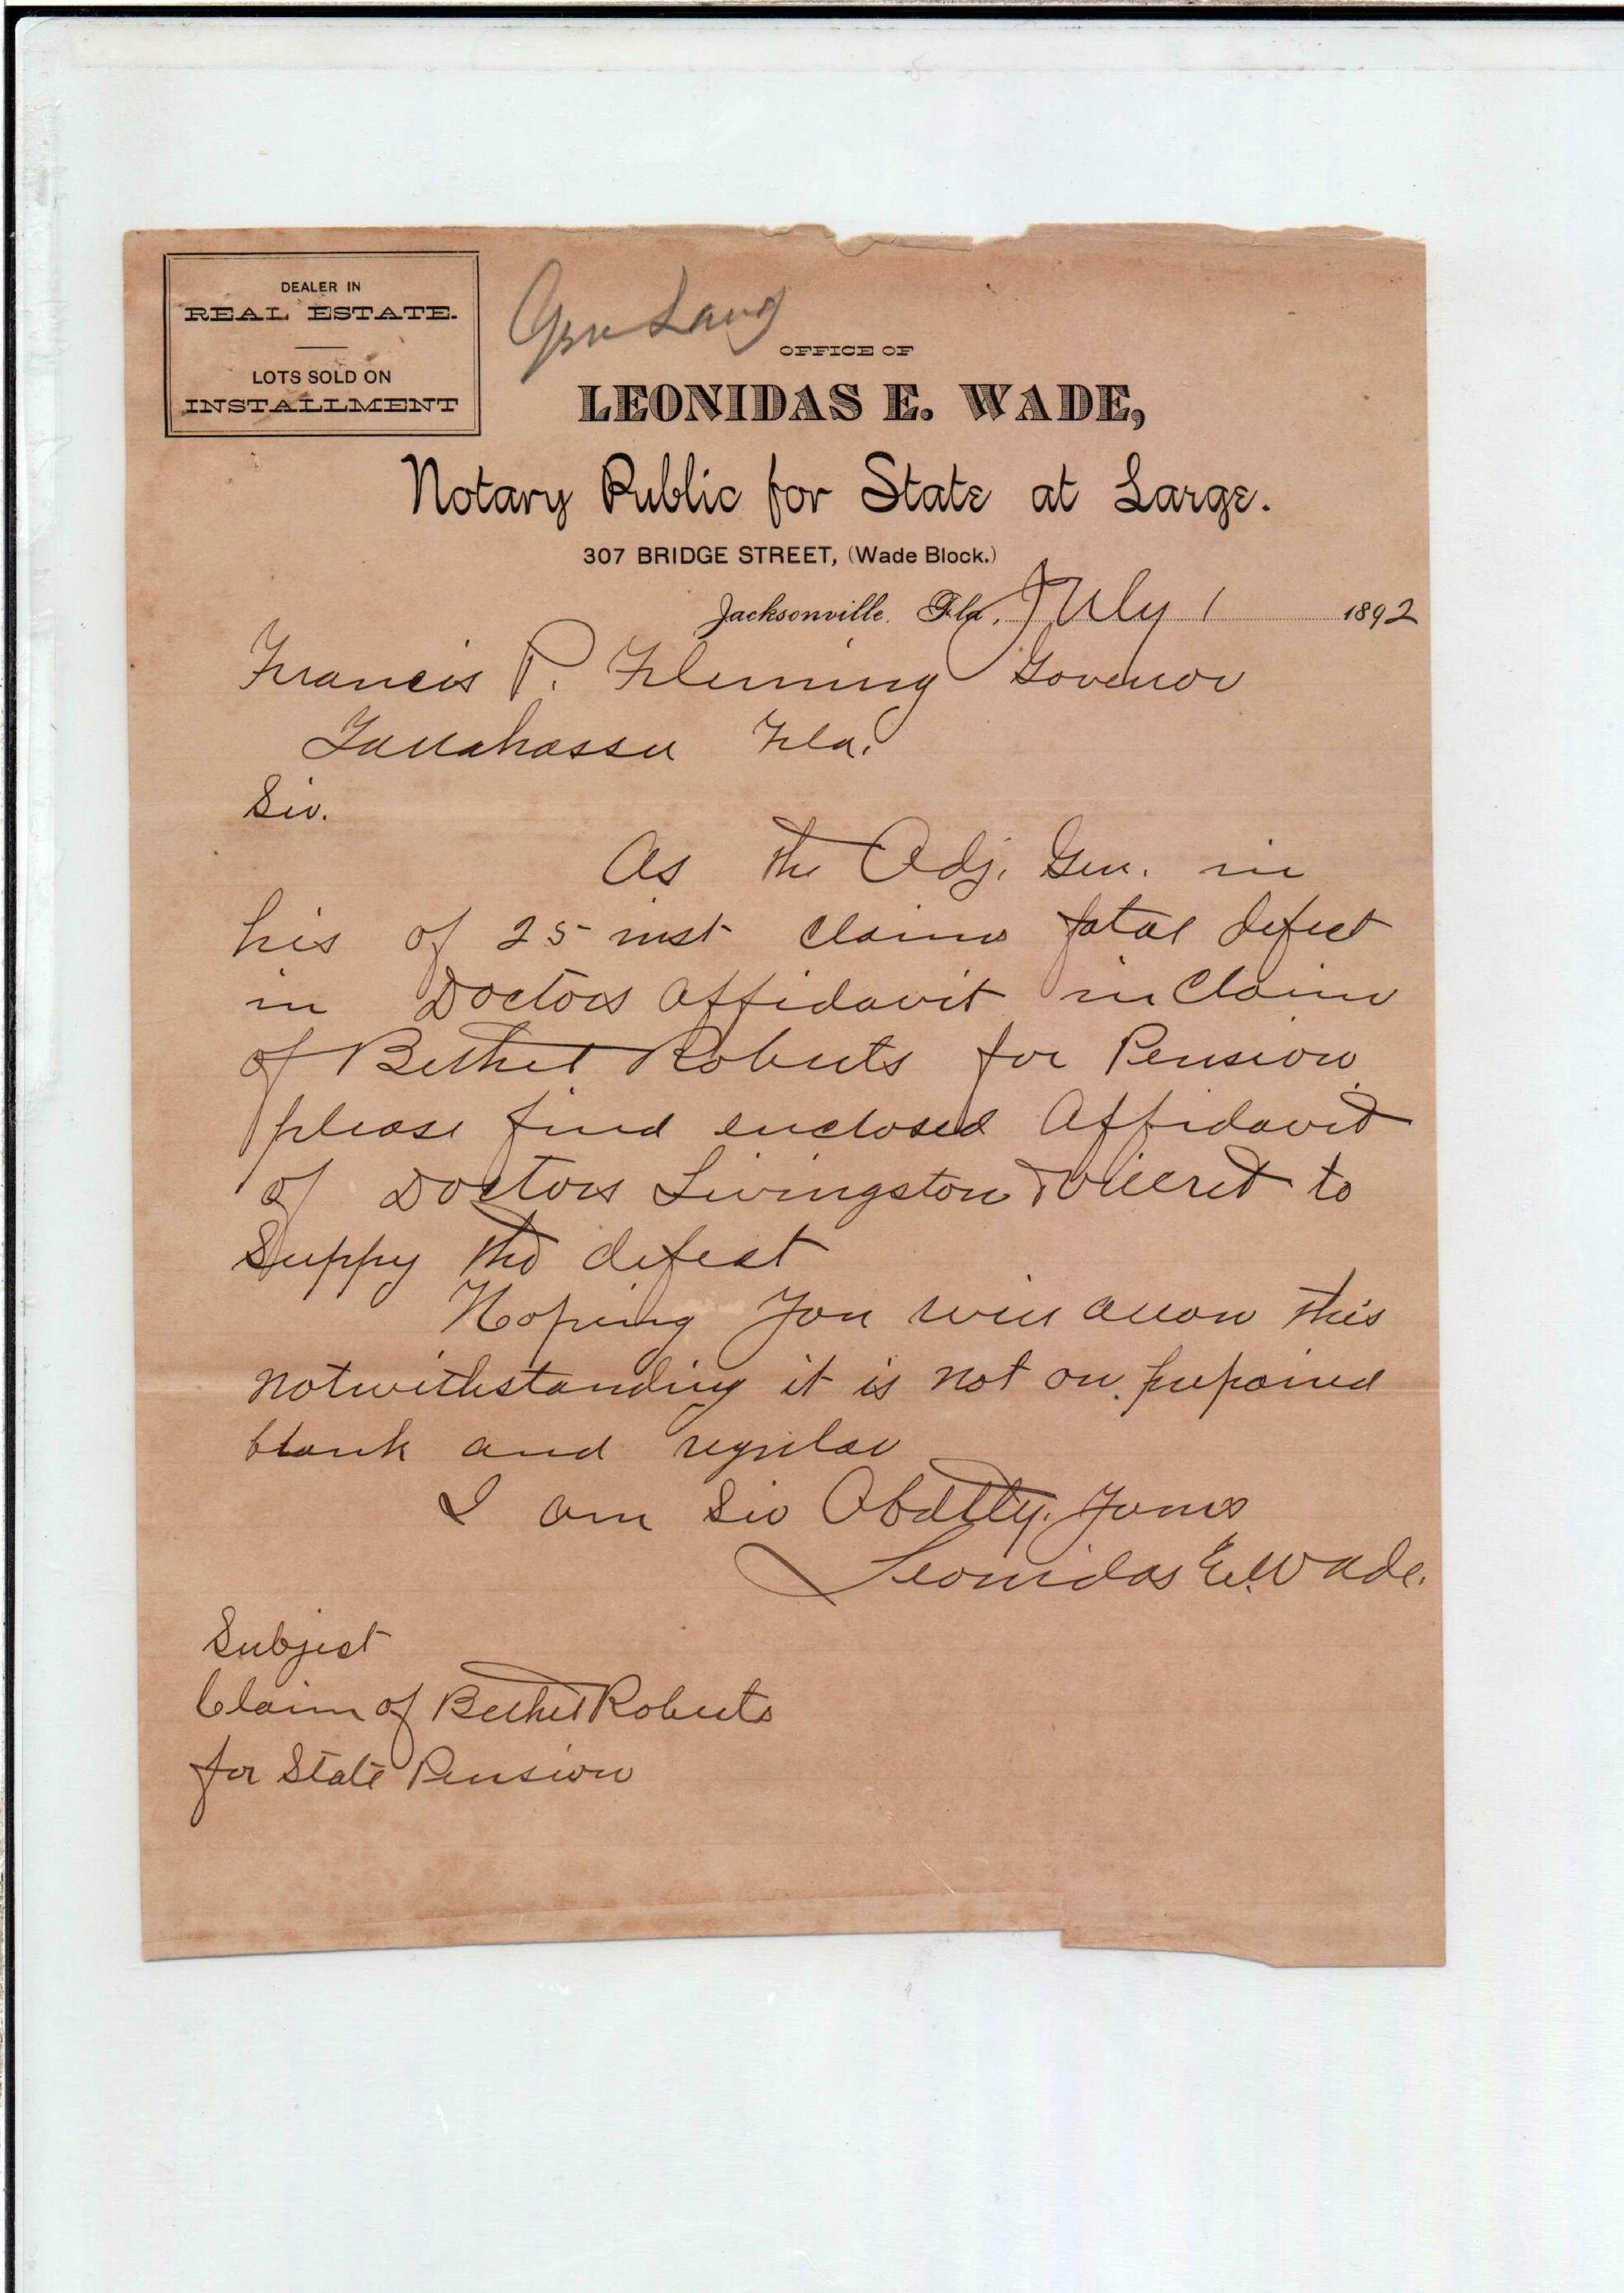 DEALER IN
REAL ESTATE.
LOTS SOLD ON
INSTALLMENT
Gen Lang
OFFICE OF
LEONIDAS E. WADE,
Notary Public for State at Large.
307 BRIDGE STREET, (Wade Block.)
Jacksonville, Fla, July 1 1892
Francis P. Fleming Govenor
Tallahassee Fla.
Sir.
As the Adj. Gen. in
his of 25 inst claims fatal defect
in Doctors Affidavit in Claim
of Bethel Roberts for Pension
please find enclosed Affidavit
of Doctors Livingston & to
Suppy the defect
Hoping You will allow this
notwithstanding it is not on prepaired
blank and regular
I am Sir Obdtly. Yours
Leonidas E. Wade.
Subject
Claim of Bethel Roberts
for State Pension